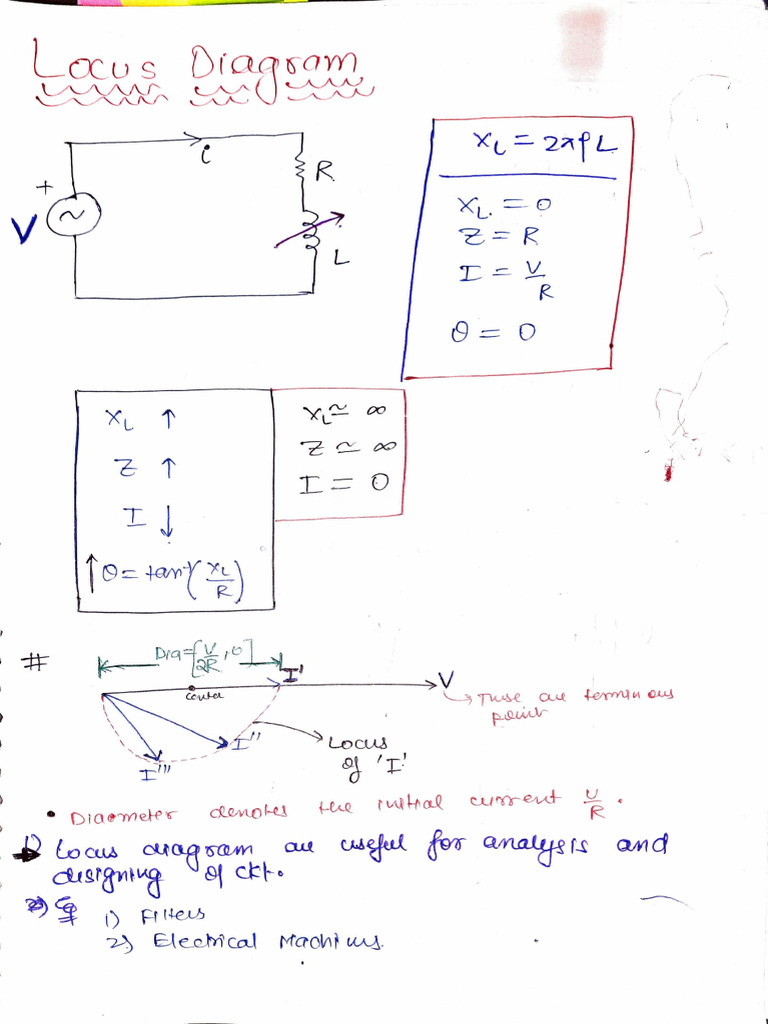 Locus Diagram
i
R
+
V
~
L
XL = 2πfL
XL = 0
Z = R
I = V/R
θ = 0
XL ↑
Z ↑
I ↓
↑ θ = tan⁻¹(XL/R)
XL ≃ ∞
Z ≃ ∞
I = 0
#
Dia = [V/2R, 0]
I'
V
center
These are terminous
point
I''
I'''
Locus
of 'I'
• Diaometer denotes the initial current V/R.
1) Locus diagram are useful for analysis and
designing of ckt.
2) Eg 1) Filters
2) Electrical Machines.